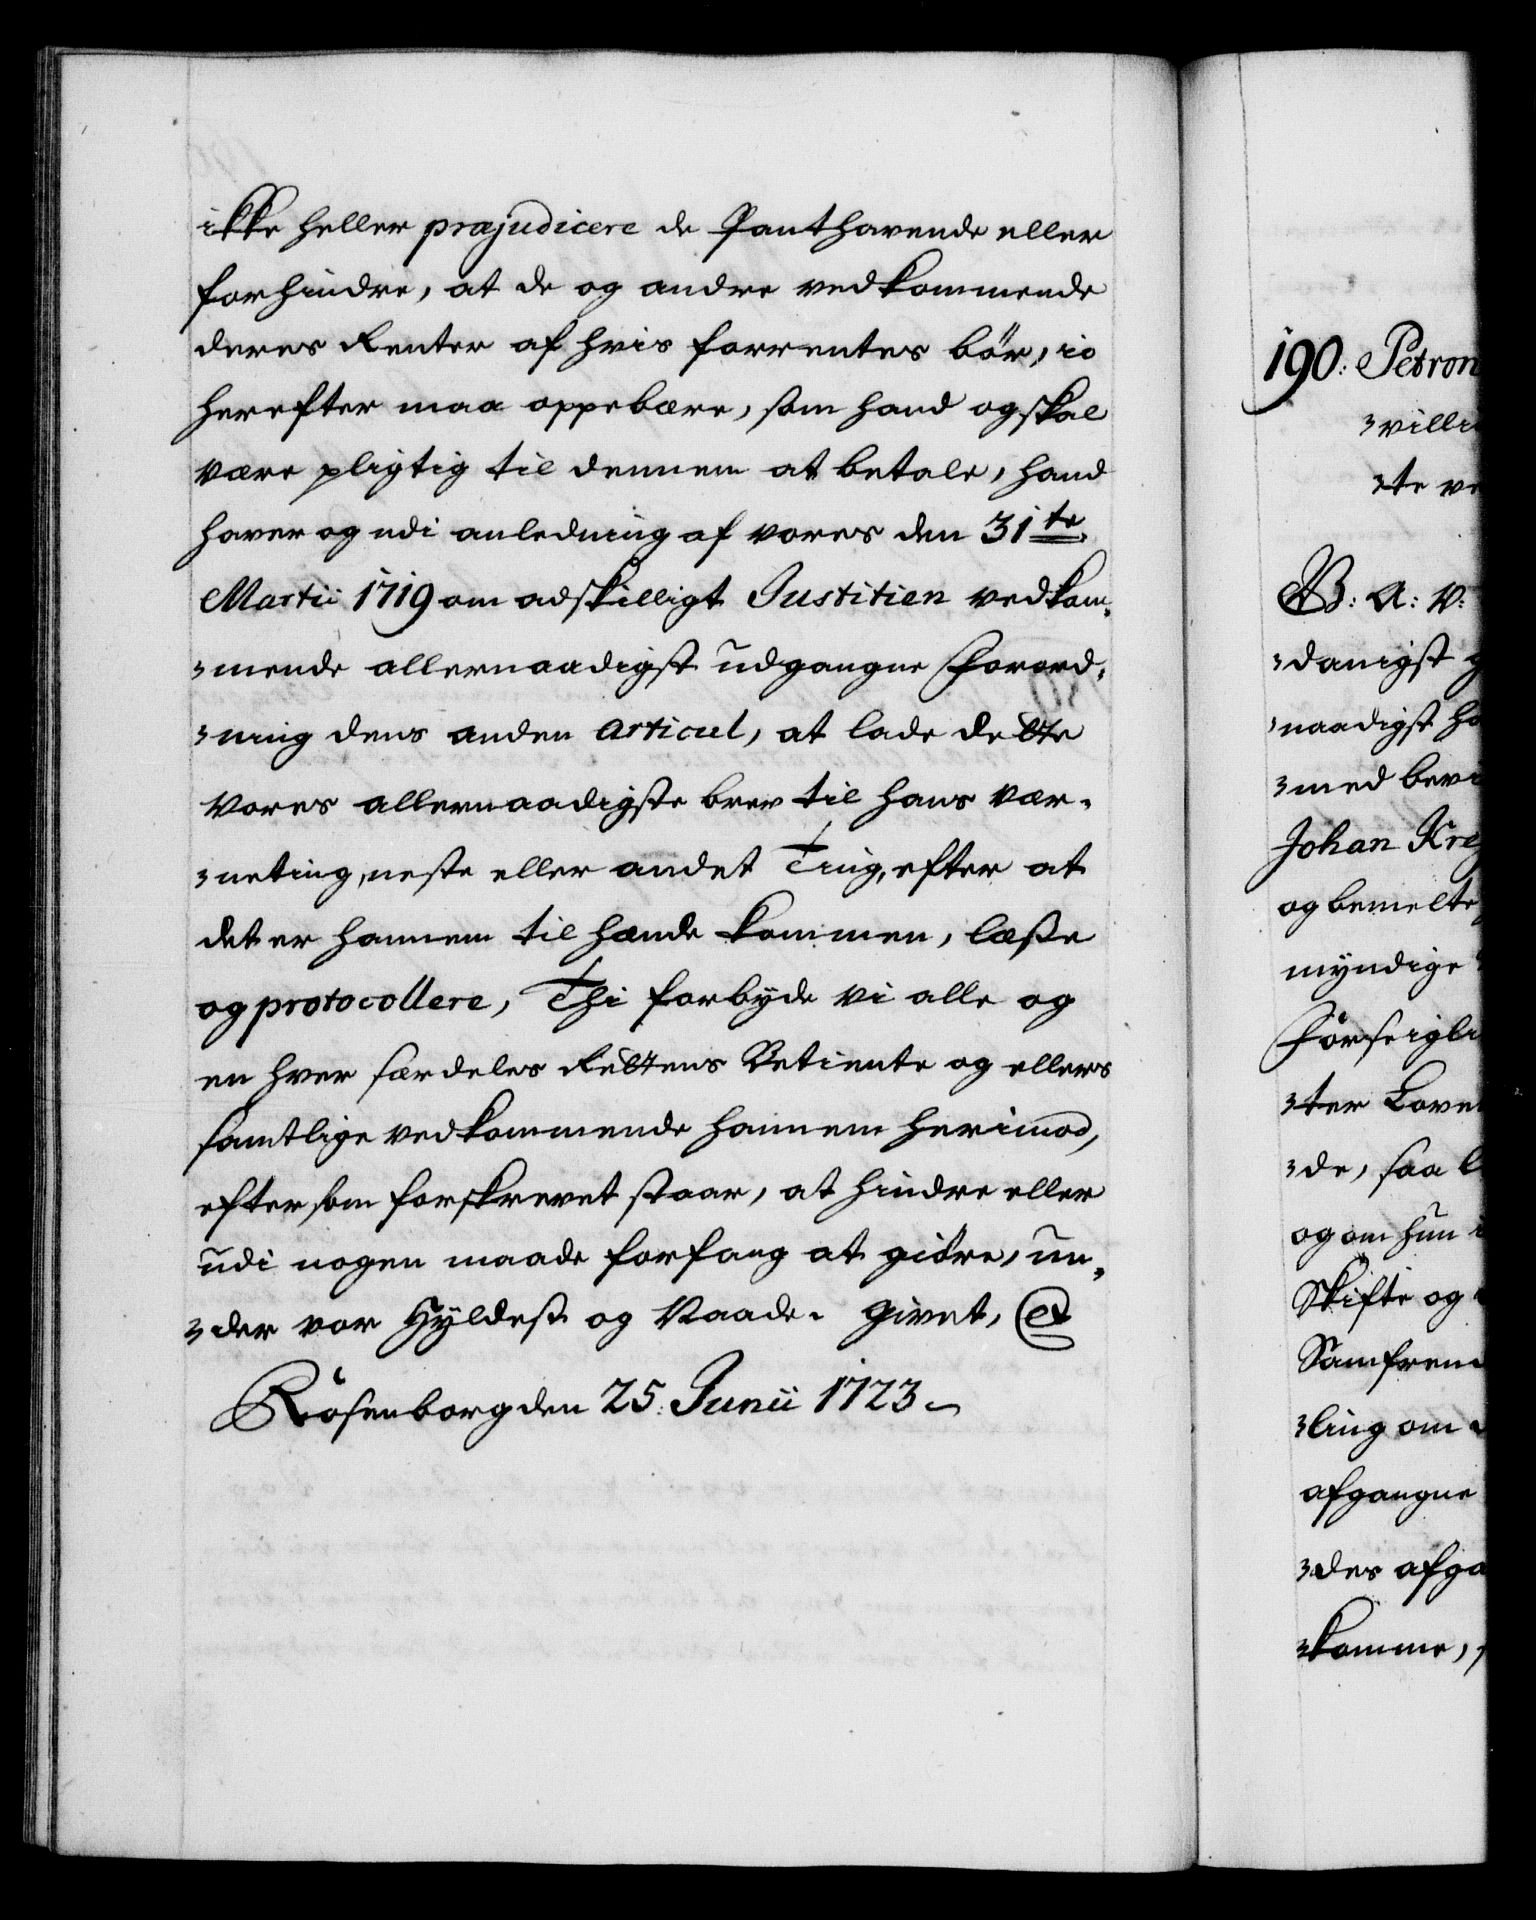 ikke heller præjudicere de Panthavende eller
forhindre, at de og andre vedkommende
deres Renter af hvis forrentes bör, io
herefter maa oppebære, som hand og skal
være pligtig til dennem at betale, hand
haver og udi anledning af vores den 31te
Martii 1719 om adskilligt Justitien vedkom-
-mende allernaadigst udgangne Forord-
-ning dens anden Articul, at lade dette
vores allernaadigste brev til hans vær-
-neting, neste eller andet Ting, efter at
det er hannem til hænde kommen, læse
og protocollere, Thi forbyde vi alle og
en hver særdeles Rettens Betiente og ellers
samtlige vedkommende hannem herimod,
eftersom forskrevet staar, at hindre eller
udi nogen maade forfang at giöre, un-
-der vor Hyldest og Naade. Givet, &
Rosenborg den 25. Junii 1723.
190. Petron
-villi
-te ve
G: A: V:
-danigst g
-naadigst ha
-med bevi
Johan Kre
og bemelte
myndige
Forseigli
-ter Loven
-de, saa l
og om hun i
Skifte og
Samfrend
-ling om
afgangne
-des afga
-komme,